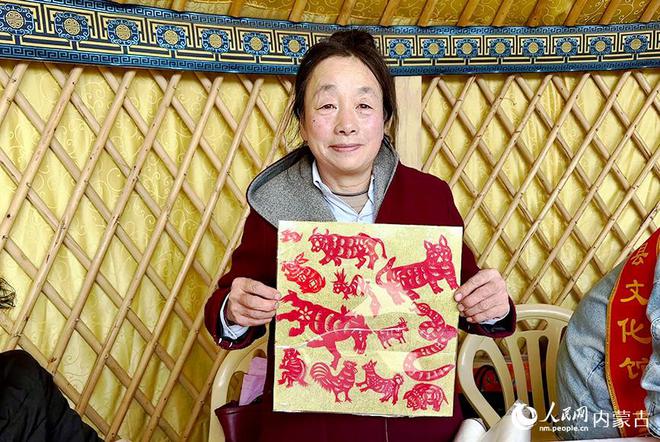 县文化馆
人民网 内蒙古
nm.people.cn